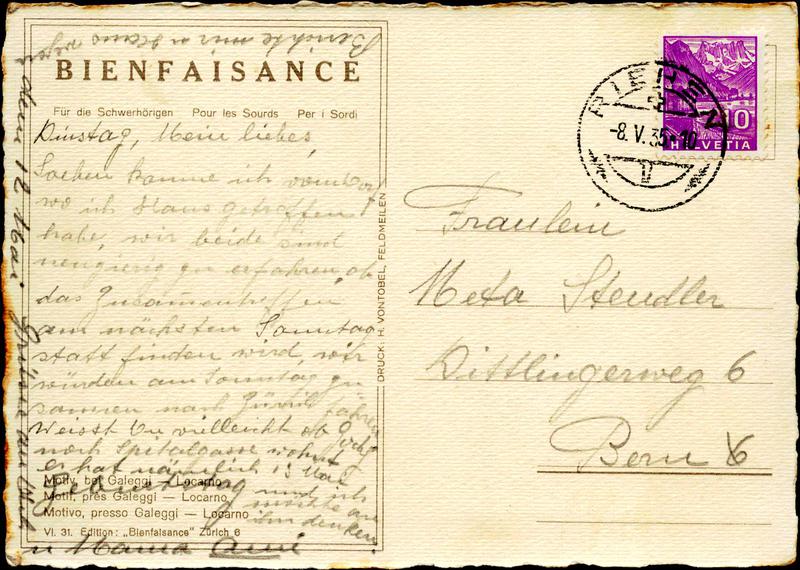 BIENFAISANCE
Für die Schwerhörigen Pour les Sourds Per i Sordi
Dinstag, Mein liebes,
Soeben komme ich vom
wo ich Hans getroffen
habe, wir beide sind
neugierig zu erfahren, ob
das Zusammentreffen
am nächsten Sonntag
statt finden wird, wir
würden am Sonntag zu
sammen nach Zürich fahren
Weisst Du vielleicht ob
noch Spitalgasse wohnt
er hat nämlich 13 Mai
Geburtstag und ich
möchte an
ihn denken
Motiv, bei Galeggi — Locarno
Motif, près Galeggi — Locarno
Motivo, presso Galeggi — Locarno
VI. 31. Edition: „Bienfaisance" Zürich 6
u Mama
Berichte mir
12 Mai Grüsse an
DRUCK: H. VONTOBEL, FELDMEILEN
RIEHEN
-8.V.35-10
10
HELVETIA
Fräulein
Meta Stendler
Dittlingerweg 6
Bern 6